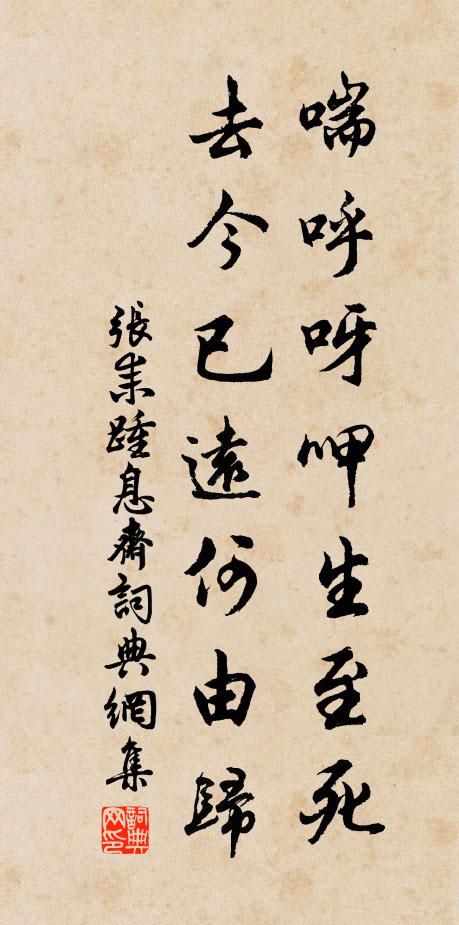 喘呼呀呷生至死
去今已遠何由歸
張耒踵息齋詞典網集
詞典網印